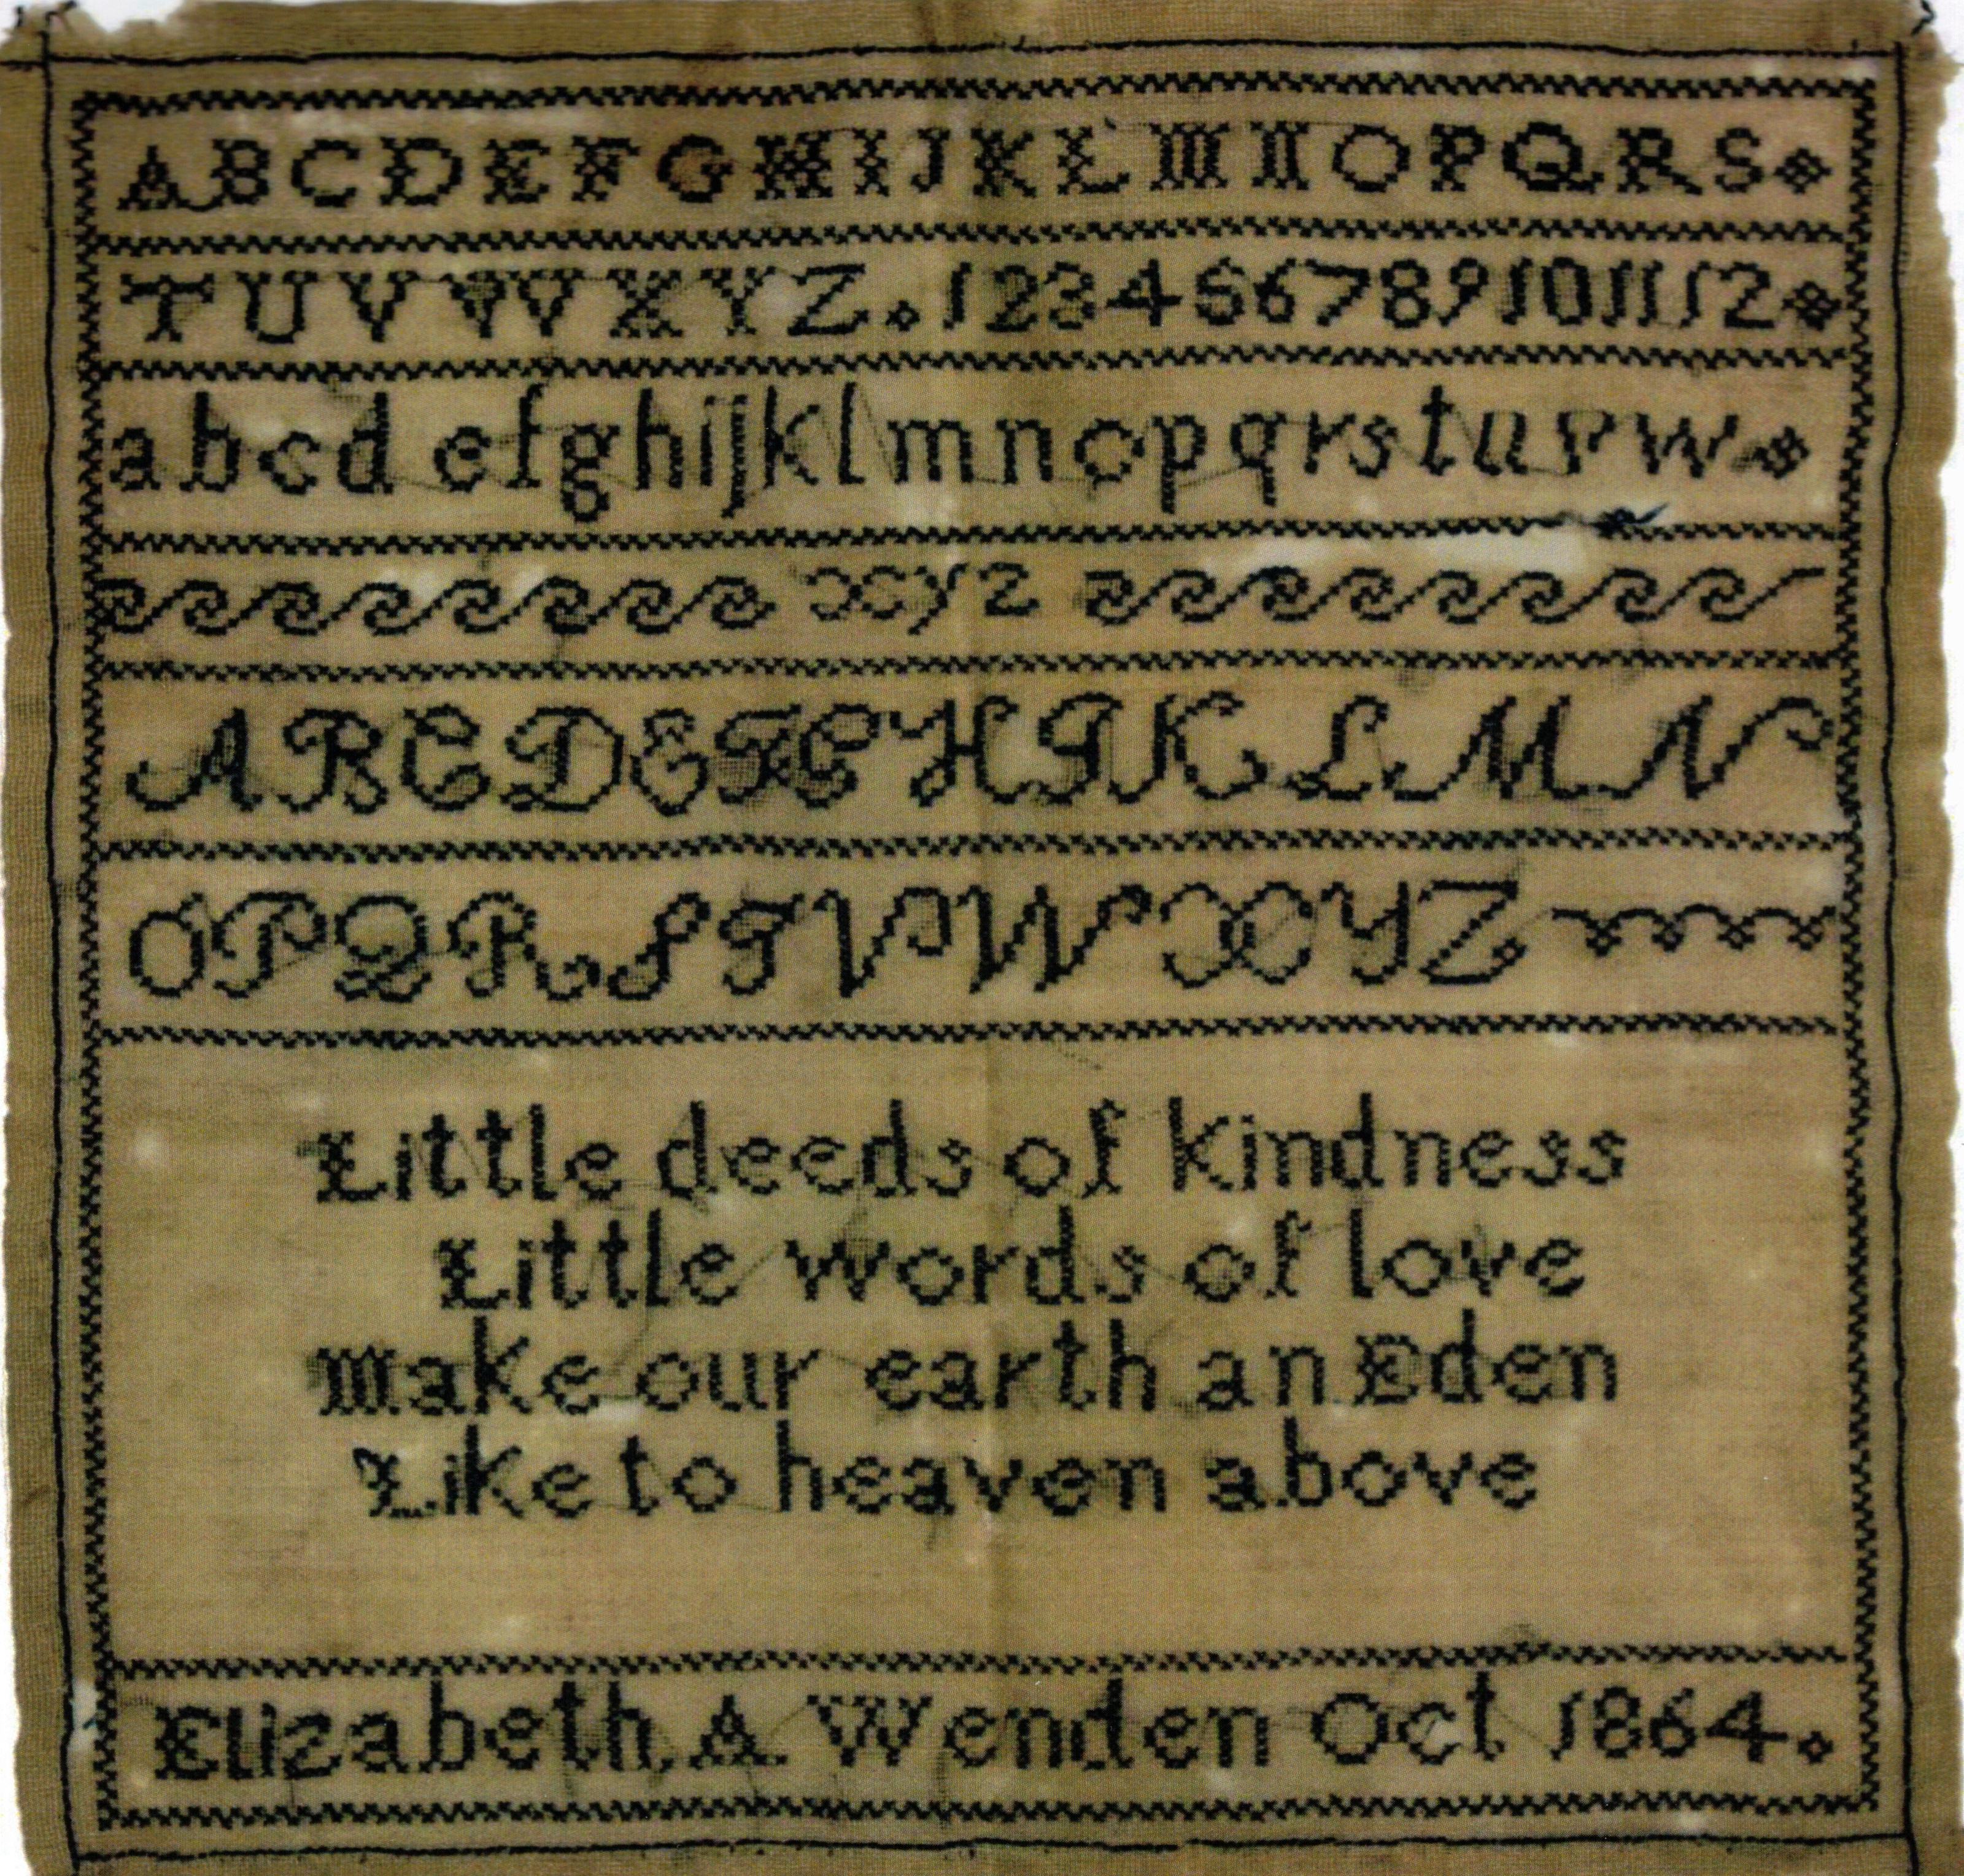 ABCDEFGHIJKLMNOPQRS
TUVWXYZ. 1 2 3 4 5 6 7 8 9 10 11 12
abcdefghijklmnopqrstuvw
xyz
ABCDEFGHIKLMN
OPQRSTVWXYZ
Little deeds of kindness
Little words of love
Make our earth an Eden
Like to heaven above
Elizabeth A Wenden Oct 1864.